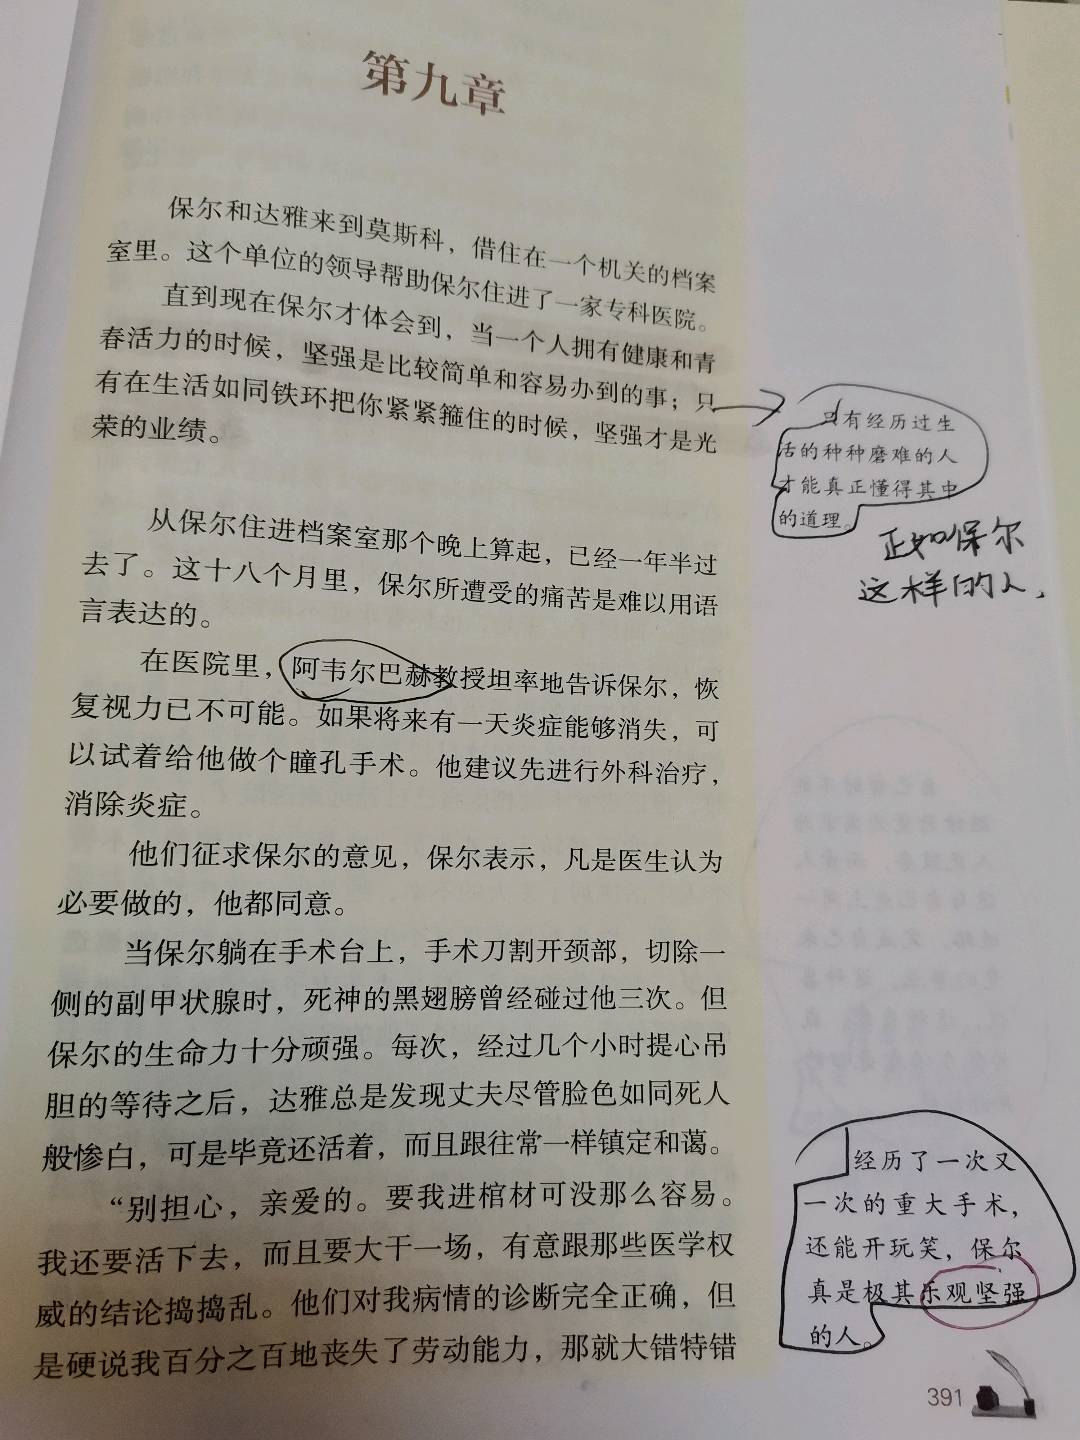 第九章
保尔和达雅来到莫斯科，借住在一个机关的档案
室里。这个单位的领导帮助保尔住进了一家专科医院。
直到现在保尔才体会到，当一个人拥有健康和青
春活力的时候，坚强是比较简单和容易办到的事；只
有在生活如同铁环把你紧紧箍住的时候，坚强才是光
荣的业绩。
只有经历过生
活的种种磨难的人
才能真正懂得其中
的道理。
正如保尔
这样的人，
从保尔住进档案室那个晚上算起，已经一年半过
去了。这十八个月里，保尔所遭受的痛苦是难以用语
言表达的。
在医院里，阿韦尔巴赫教授坦率地告诉保尔，恢
复视力已不可能。如果将来有一天炎症能够消失，可
以试着给他做个瞳孔手术。他建议先进行外科治疗，
消除炎症。
他们征求保尔的意见，保尔表示，凡是医生认为
必要做的，他都同意。
当保尔躺在手术台上，手术刀割开颈部，切除一
侧的副甲状腺时，死神的黑翅膀曾经碰过他三次。但
保尔的生命力十分顽强。每次，经过几个小时提心吊
胆的等待之后，达雅总是发现丈夫尽管脸色如同死人
般惨白，可是毕竟还活着，而且跟往常一样镇定和蔼。
“别担心，亲爱的。要我进棺材可没那么容易。
我还要活下去，而且要大干一场，有意跟那些医学权
威的结论捣捣乱。他们对我病情的诊断完全正确，但
是硬说我百分之百地丧失了劳动能力，那就大错特错
经历了一次又
一次的重大手术，
还能开玩笑，保尔
真是极其乐观坚强
的人。
391